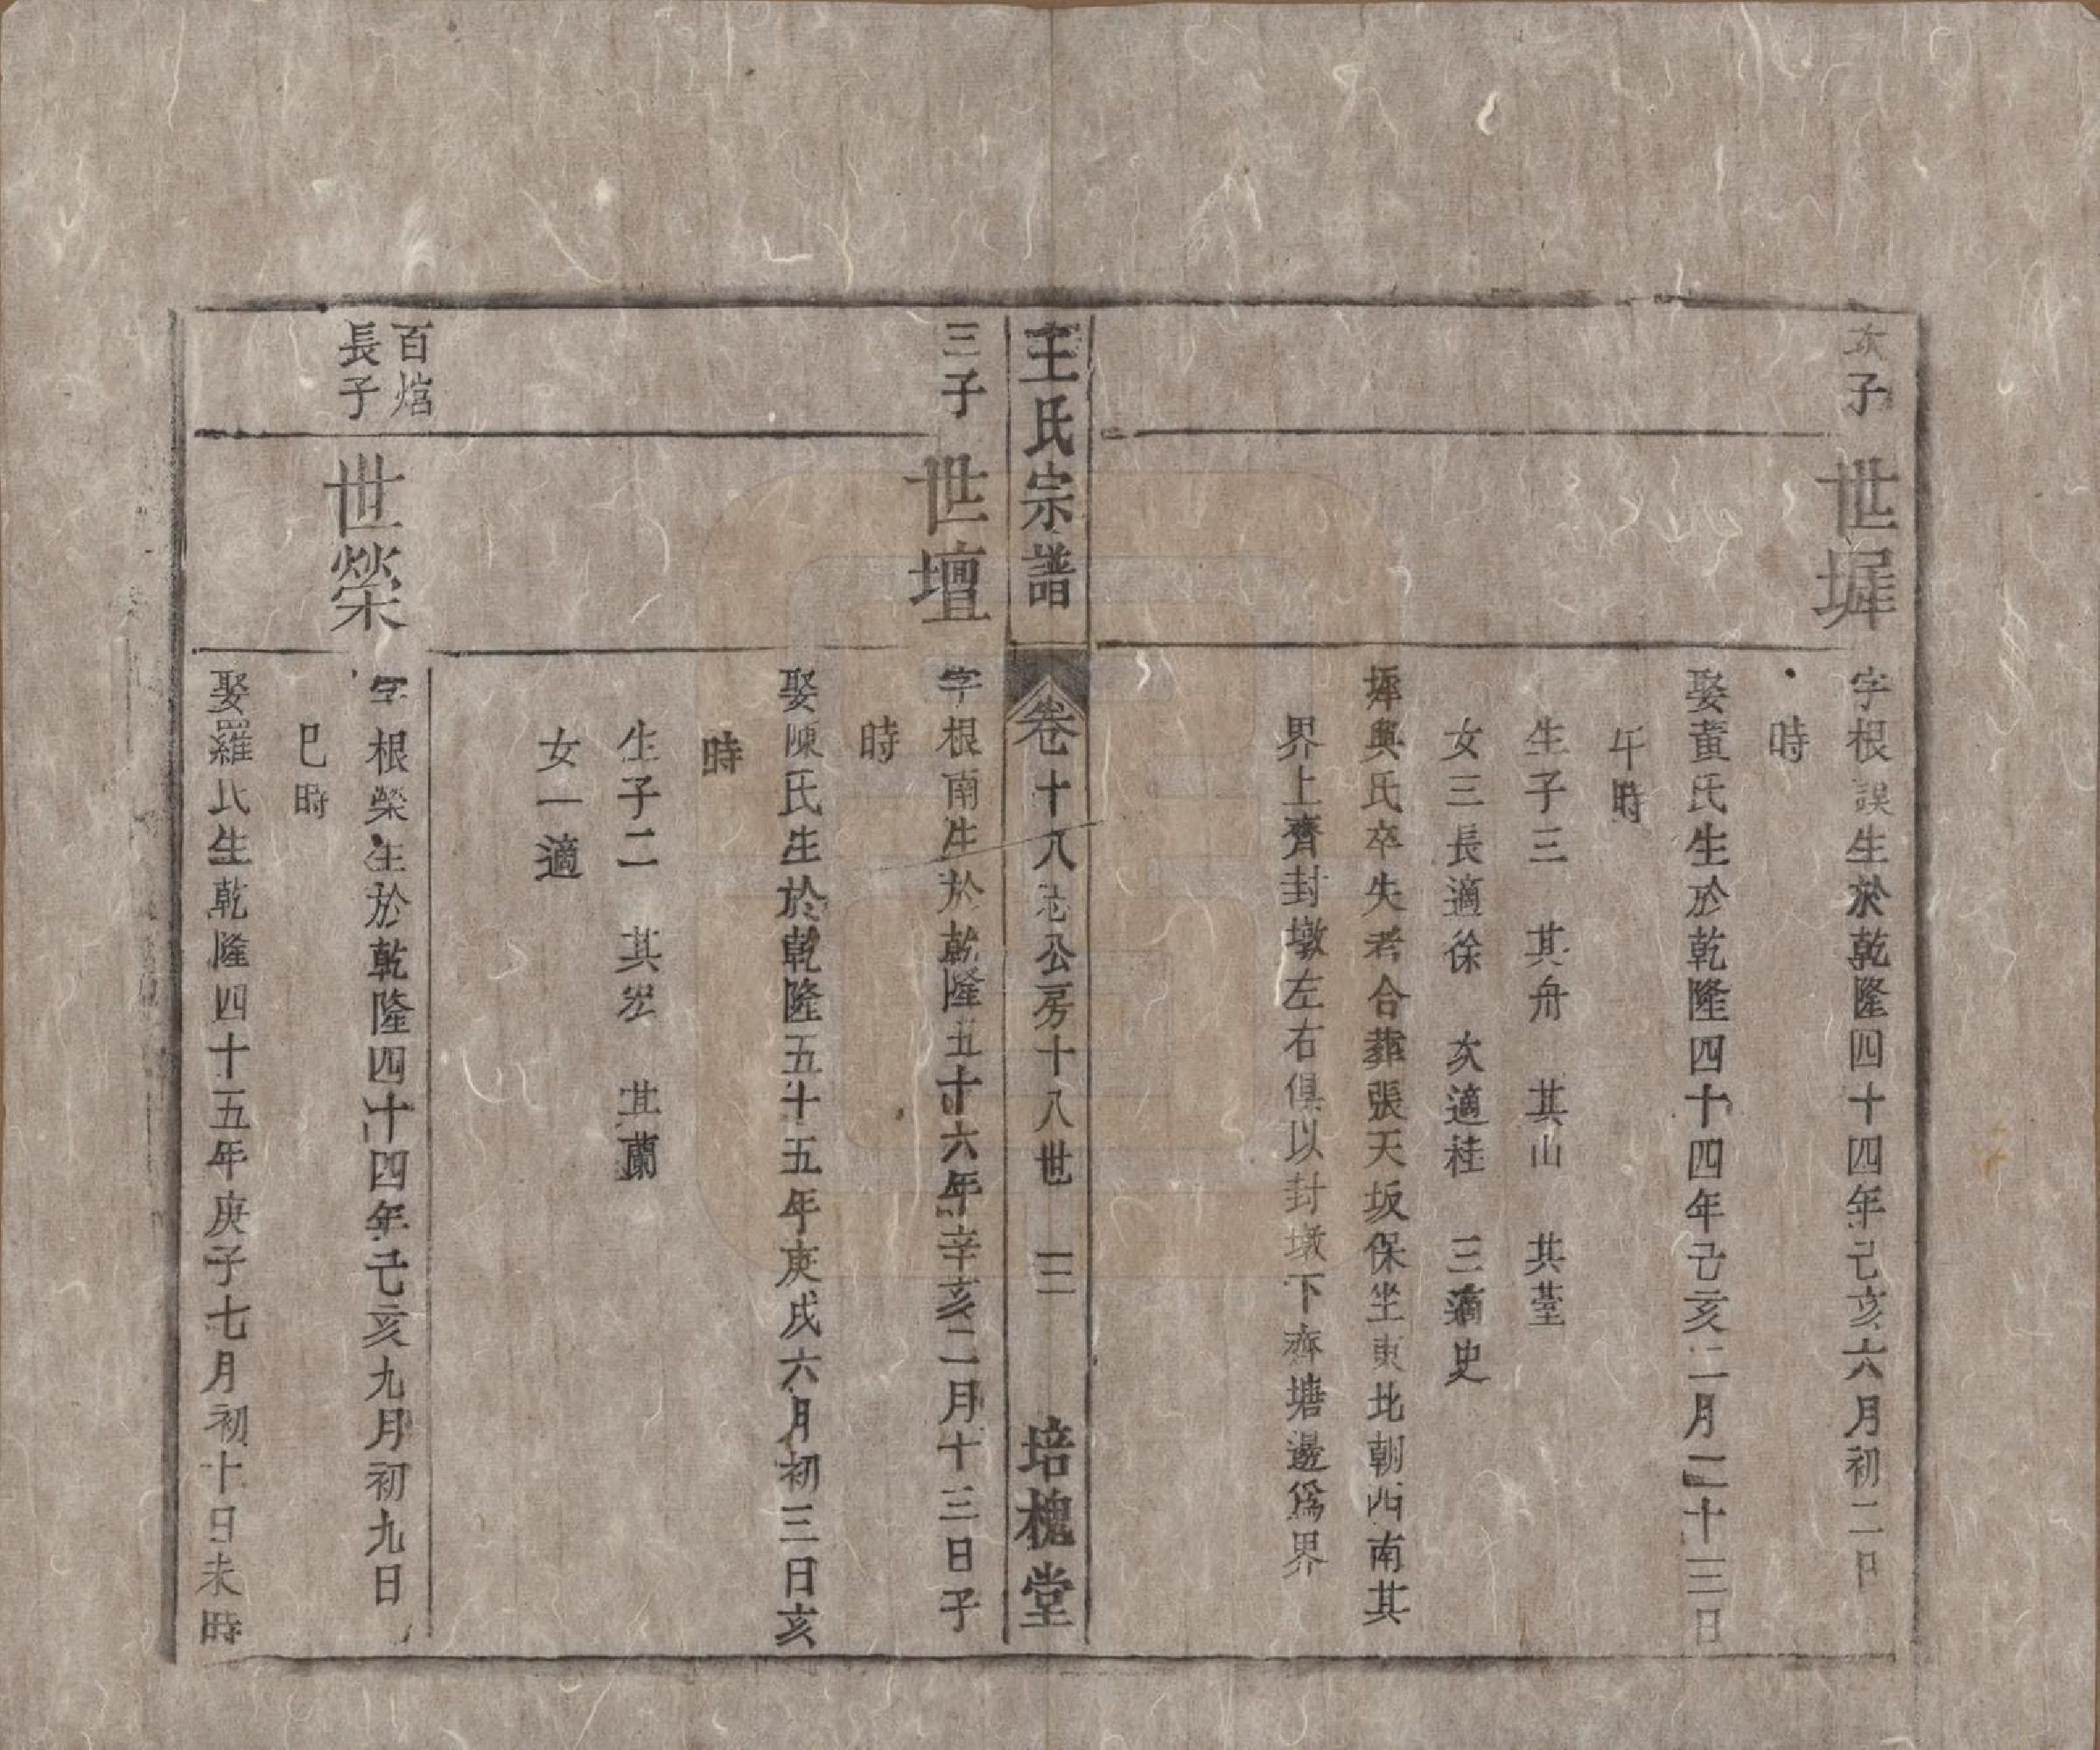 次子
世墀
字根謨生於乾隆四十四年己亥六月初二日
時
娶黄氏生於乾隆四十四年己亥二月二十三日
午時
生子三　其舟　其山　其莹
女三長適徐　次適桂　三適史
墀與氏卒失考合葬張天坂保坐東北朝西南其
界上齊封墩左右俱以封墩下齊塘邊爲界
王氏宗譜
卷十八 公房十八世　三
培槐堂
三子
世壇
字根南生於乾隆五十六年辛亥二月十三日子
時
娶陳氏生於乾隆五十五年庚戌六月初三日亥
時
生子二　其宏　其蘭
女一適
百焅
長子
世榮
字根榮生於乾隆四十四年己亥九月初九日
巳時
娶羅氏生乾隆四十五年庚子七月初十日未時